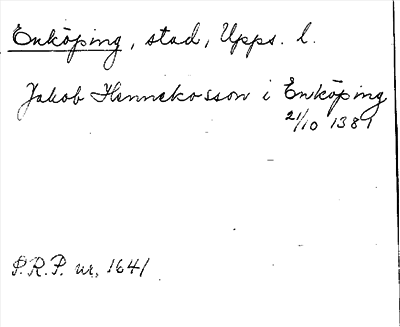 Enköping, stad, Upps. l.
Jakob Hennekosson i Enköping
21/10 1389
P.R.P. nr, 1641